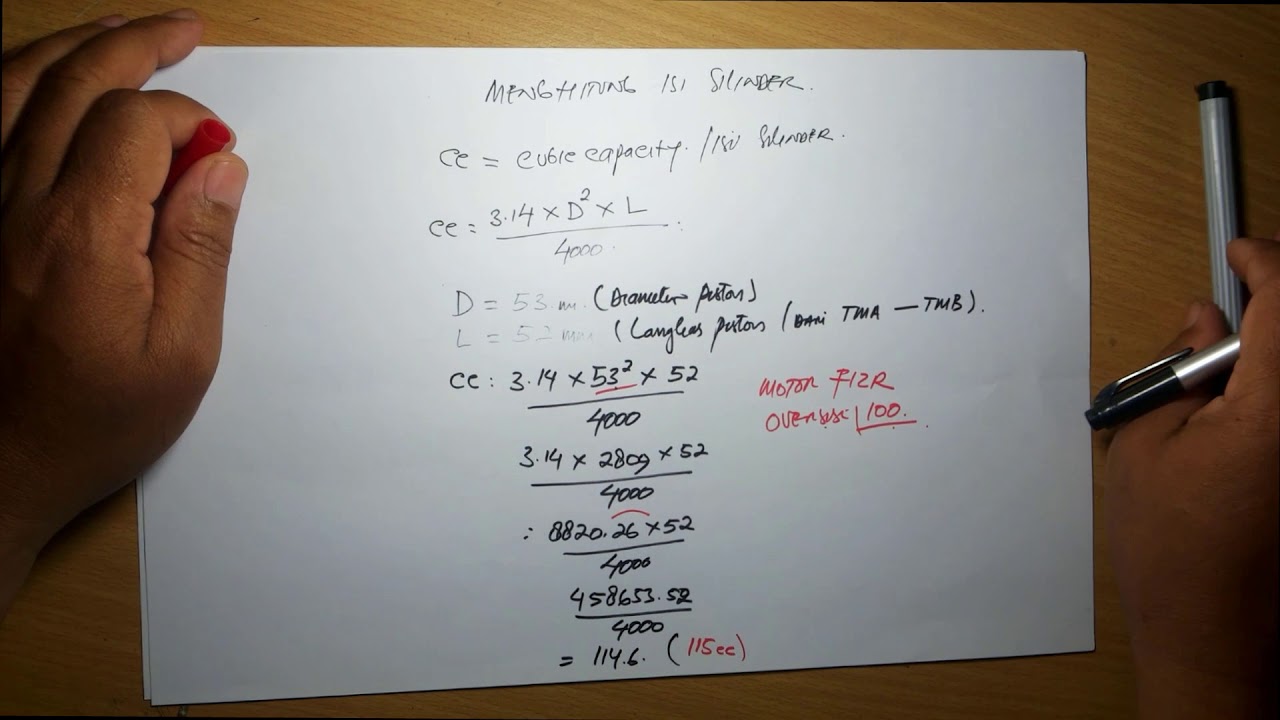 MENGHITUNG ISI SILINDER.
CC = cubic capacity. / isi SILINDER.
CC = 3.14 × D² × L
4000
D = 53 mm. (Diameter piston)
L = 52 mm (Langkas piston (DARI TMA — TMB).
CC : 3.14 × 53² × 52
4000
MOTOR F1ZR
OVERSISE 100.
3.14 × 2809 × 52
4000
: 8820.26 × 52
4000
458653.52
4000
= 114.6. (115cc)